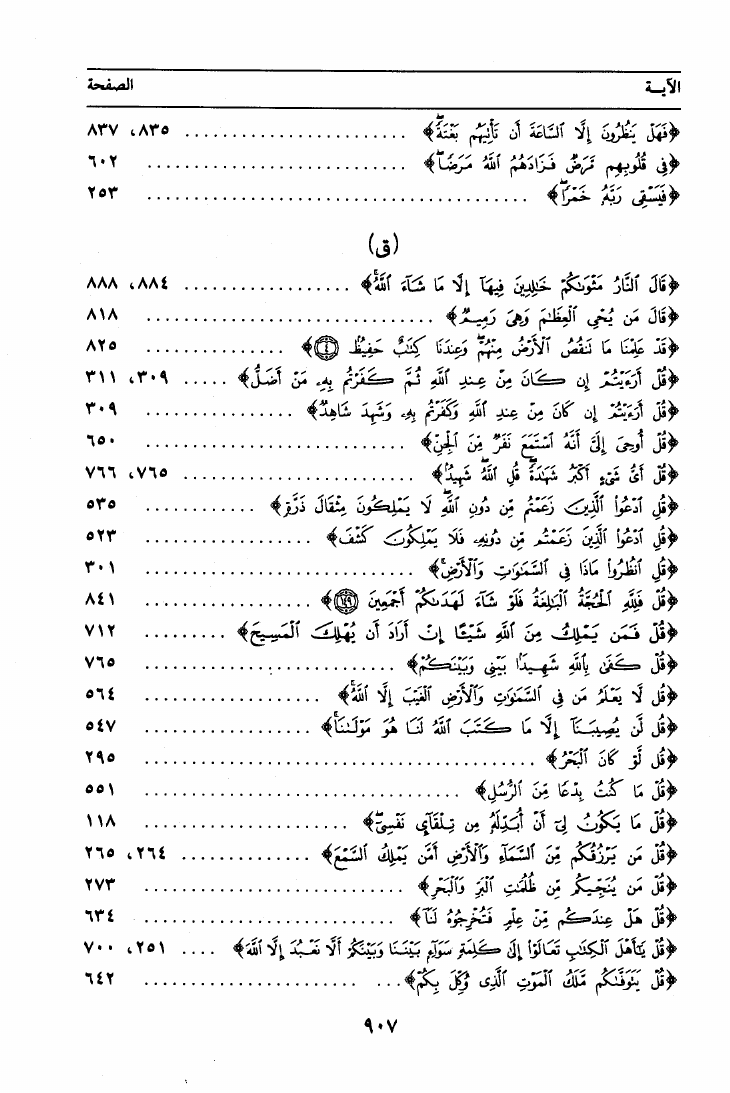 الآيــة الصفحة
﴿فَهَلْ يَنظُرُونَ إِلَّا ٱلسَّاعَةَ أَن تَأْتِيَهُم بَغْتَةً﴾ ........................ ٨٣٥، ٨٣٧
﴿فِى قُلُوبِهِم مَّرَضٌ فَزَادَهُمُ ٱللَّهُ مَرَضًا﴾ ........................... ٦٠٢
﴿فَيَسْقِى رَبَّهُۥ خَمْرًا﴾ ........................................ ٢٥٣
(ق)
﴿قَالَ ٱلنَّارُ مَثْوَىٰكُمْ خَـٰلِدِينَ فِيهَآ إِلَّا مَا شَآءَ ٱللَّهُ﴾ ................. ٨٨٤، ٨٨٨
﴿قَالَ مَن يُحْىِ ٱلْعِظَـٰمَ وَهِىَ رَمِيمٌ﴾ .............................. ٨١٨
﴿قَدْ عَلِمْنَا مَا تَنقُصُ ٱلْأَرْضُ مِنْهُمْ وَعِندَنَا كِتَـٰبٌ حَفِيظٌۢ ٤﴾ ............... ٨٢٥
﴿قُلْ أَرَءَيْتُمْ إِن كَانَ مِنْ عِندِ ٱللَّهِ ثُمَّ كَفَرْتُم بِهِۦ مَنْ أَضَلُّ﴾ ..... ٣٠٩، ٣١١
﴿قُلْ أَرَءَيْتُمْ إِن كَانَ مِنْ عِندِ ٱللَّهِ وَكَفَرْتُم بِهِۦ وَشَهِدَ شَاهِدٌ﴾ ............... ٣٠٩
﴿قُلْ أُوحِىَ إِلَىَّ أَنَّهُ ٱسْتَمَعَ نَفَرٌ مِّنَ ٱلْجِنِّ﴾ ........................... ٦٥٠
﴿قُلْ أَىُّ شَىْءٍ أَكْبَرُ شَهَـٰدَةً قُلِ ٱللَّهُ شَهِيدٌ﴾ ........................ ٧٦٥، ٧٦٦
﴿قُلِ ٱدْعُوا۟ ٱلَّذِينَ زَعَمْتُم مِّن دُونِ ٱللَّهِ لَا يَمْلِكُونَ مِثْقَالَ ذَرَّةٍ﴾ ............ ٥٣٥
﴿قُلِ ٱدْعُوا۟ ٱلَّذِينَ زَعَمْتُم مِّن دُونِهِۦ فَلَا يَمْلِكُونَ كَشْفَ﴾ .................. ٥٢٣
﴿قُلِ ٱنظُرُوا۟ مَاذَا فِى ٱلسَّمَـٰوَٰتِ وَٱلْأَرْضِ﴾ ............................ ٣٠١
﴿قُلْ فَلِلَّهِ ٱلْحُجَّةُ ٱلْبَـٰلِغَةُ فَلَوْ شَآءَ لَهَدَىٰكُمْ أَجْمَعِينَ ١٤٩﴾ .................. ٨٤١
﴿قُلْ فَمَن يَمْلِكُ مِنَ ٱللَّهِ شَيْـًٔا إِنْ أَرَادَ أَن يُهْلِكَ ٱلْمَسِيحَ﴾ ......... ٧١٢
﴿قُلْ كَفَىٰ بِٱللَّهِ شَهِيدًۢا بَيْنِى وَبَيْنَكُمْ﴾ .......................... ٧٦٥
﴿قُل لَّا يَعْلَمُ مَن فِى ٱلسَّمَـٰوَٰتِ وَٱلْأَرْضِ ٱلْغَيْبَ إِلَّا ٱللَّهُ﴾ .................. ٥٦٤
﴿قُل لَّن يُصِيبَنَآ إِلَّا مَا كَتَبَ ٱللَّهُ لَنَا هُوَ مَوْلَىٰنَا﴾ .................. ٥٤٧
﴿قُل لَّوْ كَانَ ٱلْبَحْرُ﴾ ........................................ ٢٩٥
﴿قُلْ مَا كُنتُ بِدْعًا مِّنَ ٱلرُّسُلِ﴾ ................................. ٥٥١
﴿قُلْ مَا يَكُونُ لِىٓ أَنْ أُبَدِّلَهُۥ مِن تِلْقَآئِ نَفْسِىٓ﴾ ..................... ١١٨
﴿قُلْ مَن يَرْزُقُكُم مِّنَ ٱلسَّمَآءِ وَٱلْأَرْضِ أَمَّن يَمْلِكُ ٱلسَّمْعَ﴾ .............. ٢٦٤، ٢٦٥
﴿قُلْ مَن يُنَجِّيكُم مِّن ظُلُمَـٰتِ ٱلْبَرِّ وَٱلْبَحْرِ﴾ ........................... ٢٧٣
﴿قُلْ هَلْ عِندَكُم مِّنْ عِلْمٍ فَتُخْرِجُوهُ لَنَآ﴾ .......................... ٦٣٤
﴿قُلْ يَـٰٓأَهْلَ ٱلْكِتَـٰبِ تَعَالَوْا۟ إِلَىٰ كَلِمَةٍ سَوَآءٍۭ بَيْنَنَا وَبَيْنَكُمْ أَلَّا نَعْبُدَ إِلَّا ٱللَّهَ﴾ .... ٢٥١، ٧٠٠
﴿قُلْ يَتَوَفَّىٰكُم مَّلَكُ ٱلْمَوْتِ ٱلَّذِى وُكِّلَ بِكُمْ﴾ ......................... ٦٤٢
٩٠٧